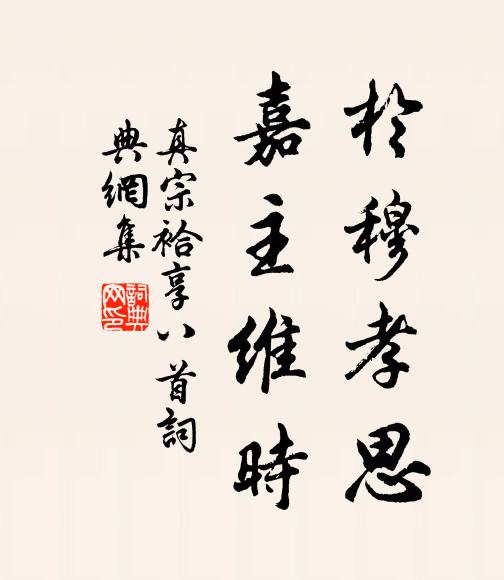 於穆孝思
嘉主維時
真宗祫享八首詞
典網集
詞典網印